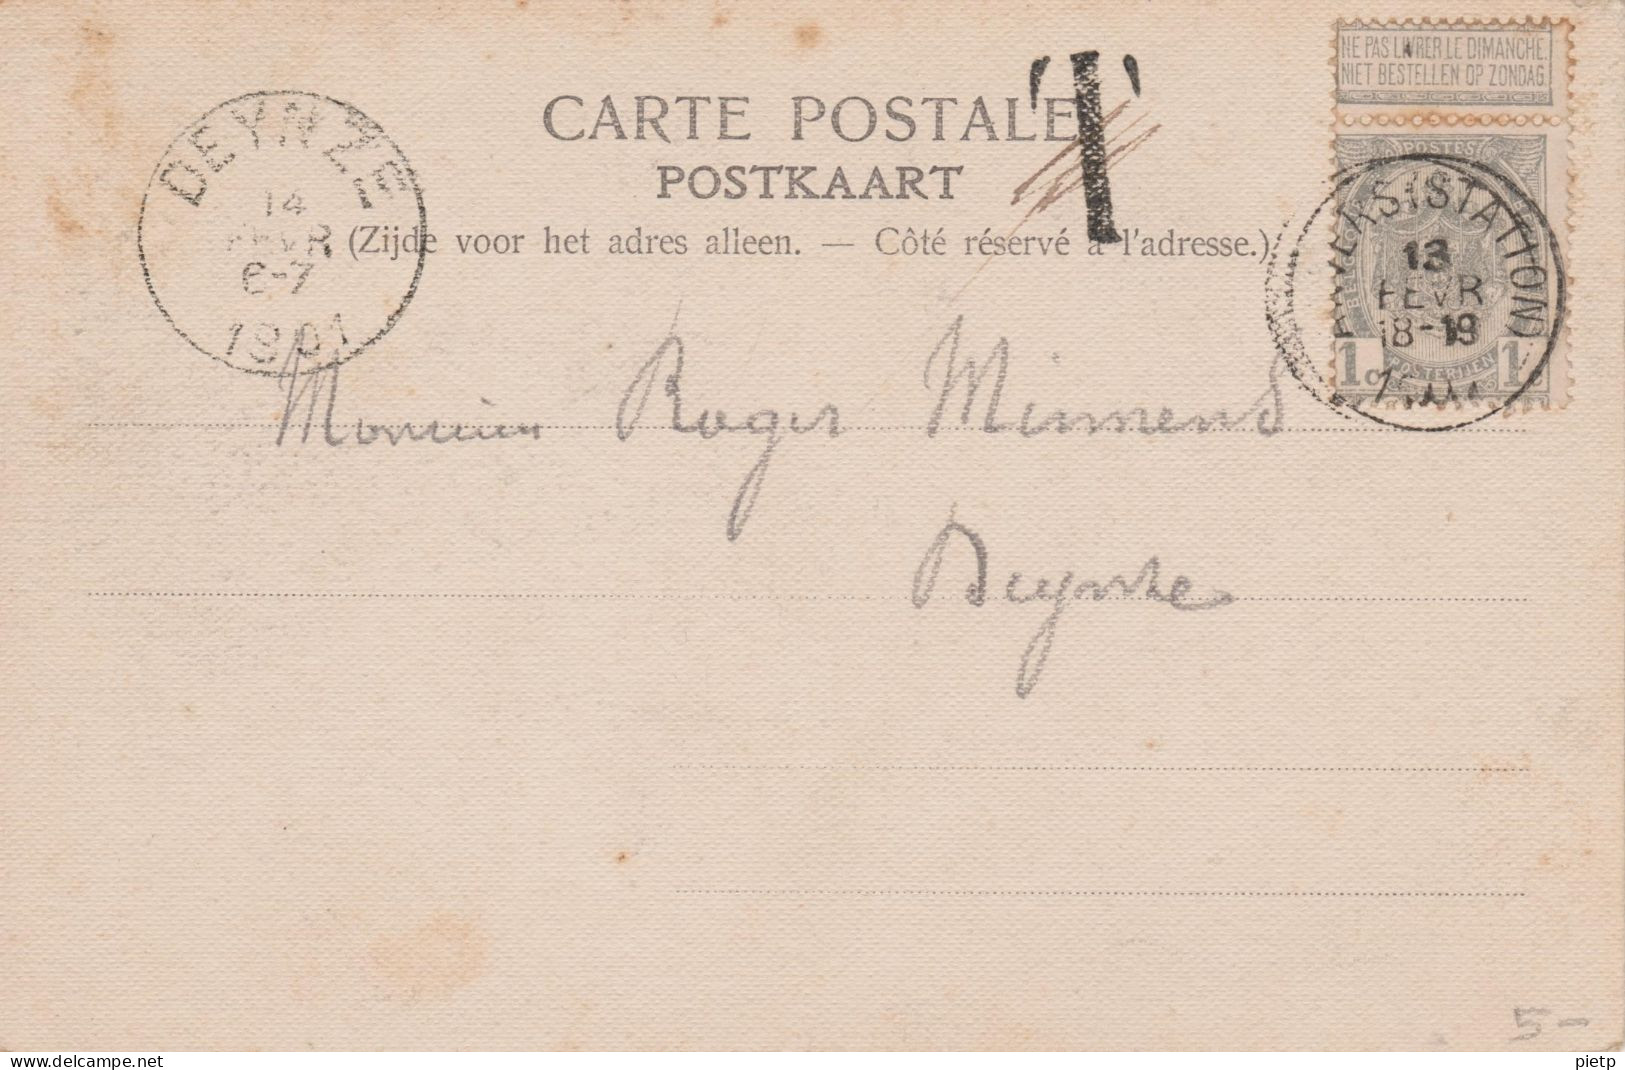 NE PAS LIVRER LE DIMANCHE
NIET BESTELLEN OP ZONDAG
T
CARTE POSTALE
POSTKAART
(Zijde voor het adres alleen. — Côté réservé à l'adresse.)
DEYNZE
14
FEVR
6-7
1901
POSTES
ANVERS (STATION)
13
FEVR
18-19
1c 1c
POSTERIJEN
Monsieur Roger
Deynze
5-
delcampe.net
pietp